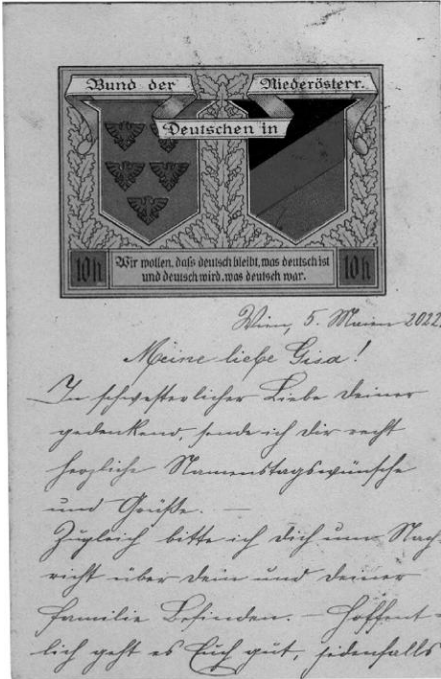 Bund der Niederösterr.
Deutschen in
10 h Wir wollen, daß deutsch bleibt, was deutsch ist 10 h
und deutsch wird, was deutsch war.
Wien, 5. 2022.
Meine liebe Gisa!
In schwesterlicher Liebe deiner
gedenkend, sende ich dir recht
herzliche Namenstagswünsche
und Grüße. —
Zugleich bitte ich dich um Nach-
richt über dein und deiner
Familie Befinden. – Hoffent-
lich geht es Euch gut, jedenfalls